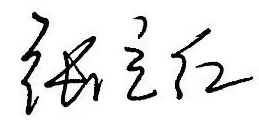 张立红